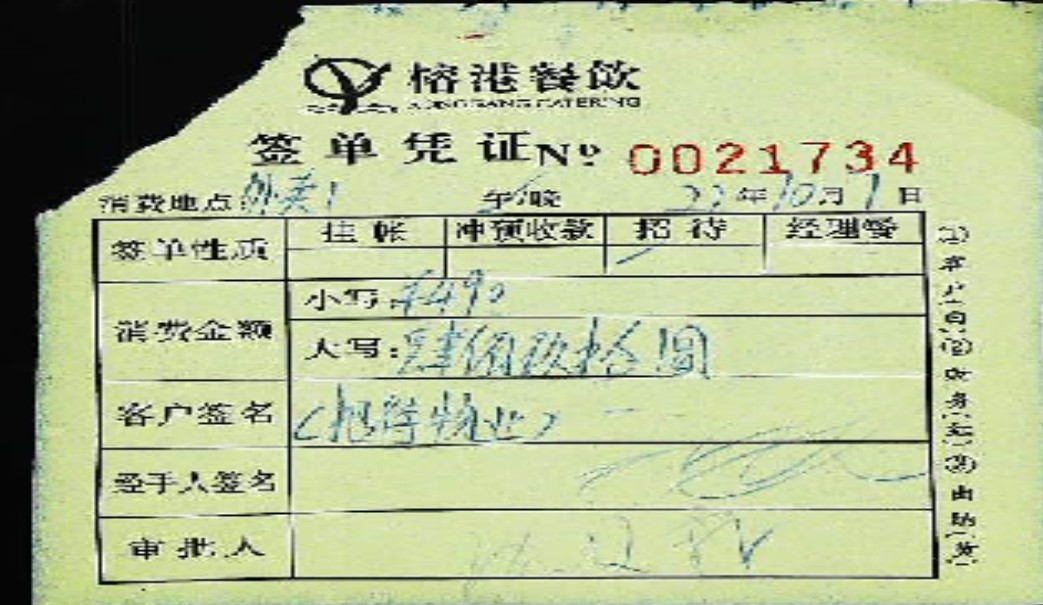 榕港餐饮
RONGGANG CATERING
签单凭证 No 0021734
消费地点:外卖1 午/晚 22年10月1日
签单性质 挂帐 冲预收款 招待 经理餐
消费金额 小写:¥490
大写:肆佰玖拾圆
客户签名 (招待物业)
经手人签名
审批人
(1)客户(白)(2)财务(红)(3)出纳(黄)